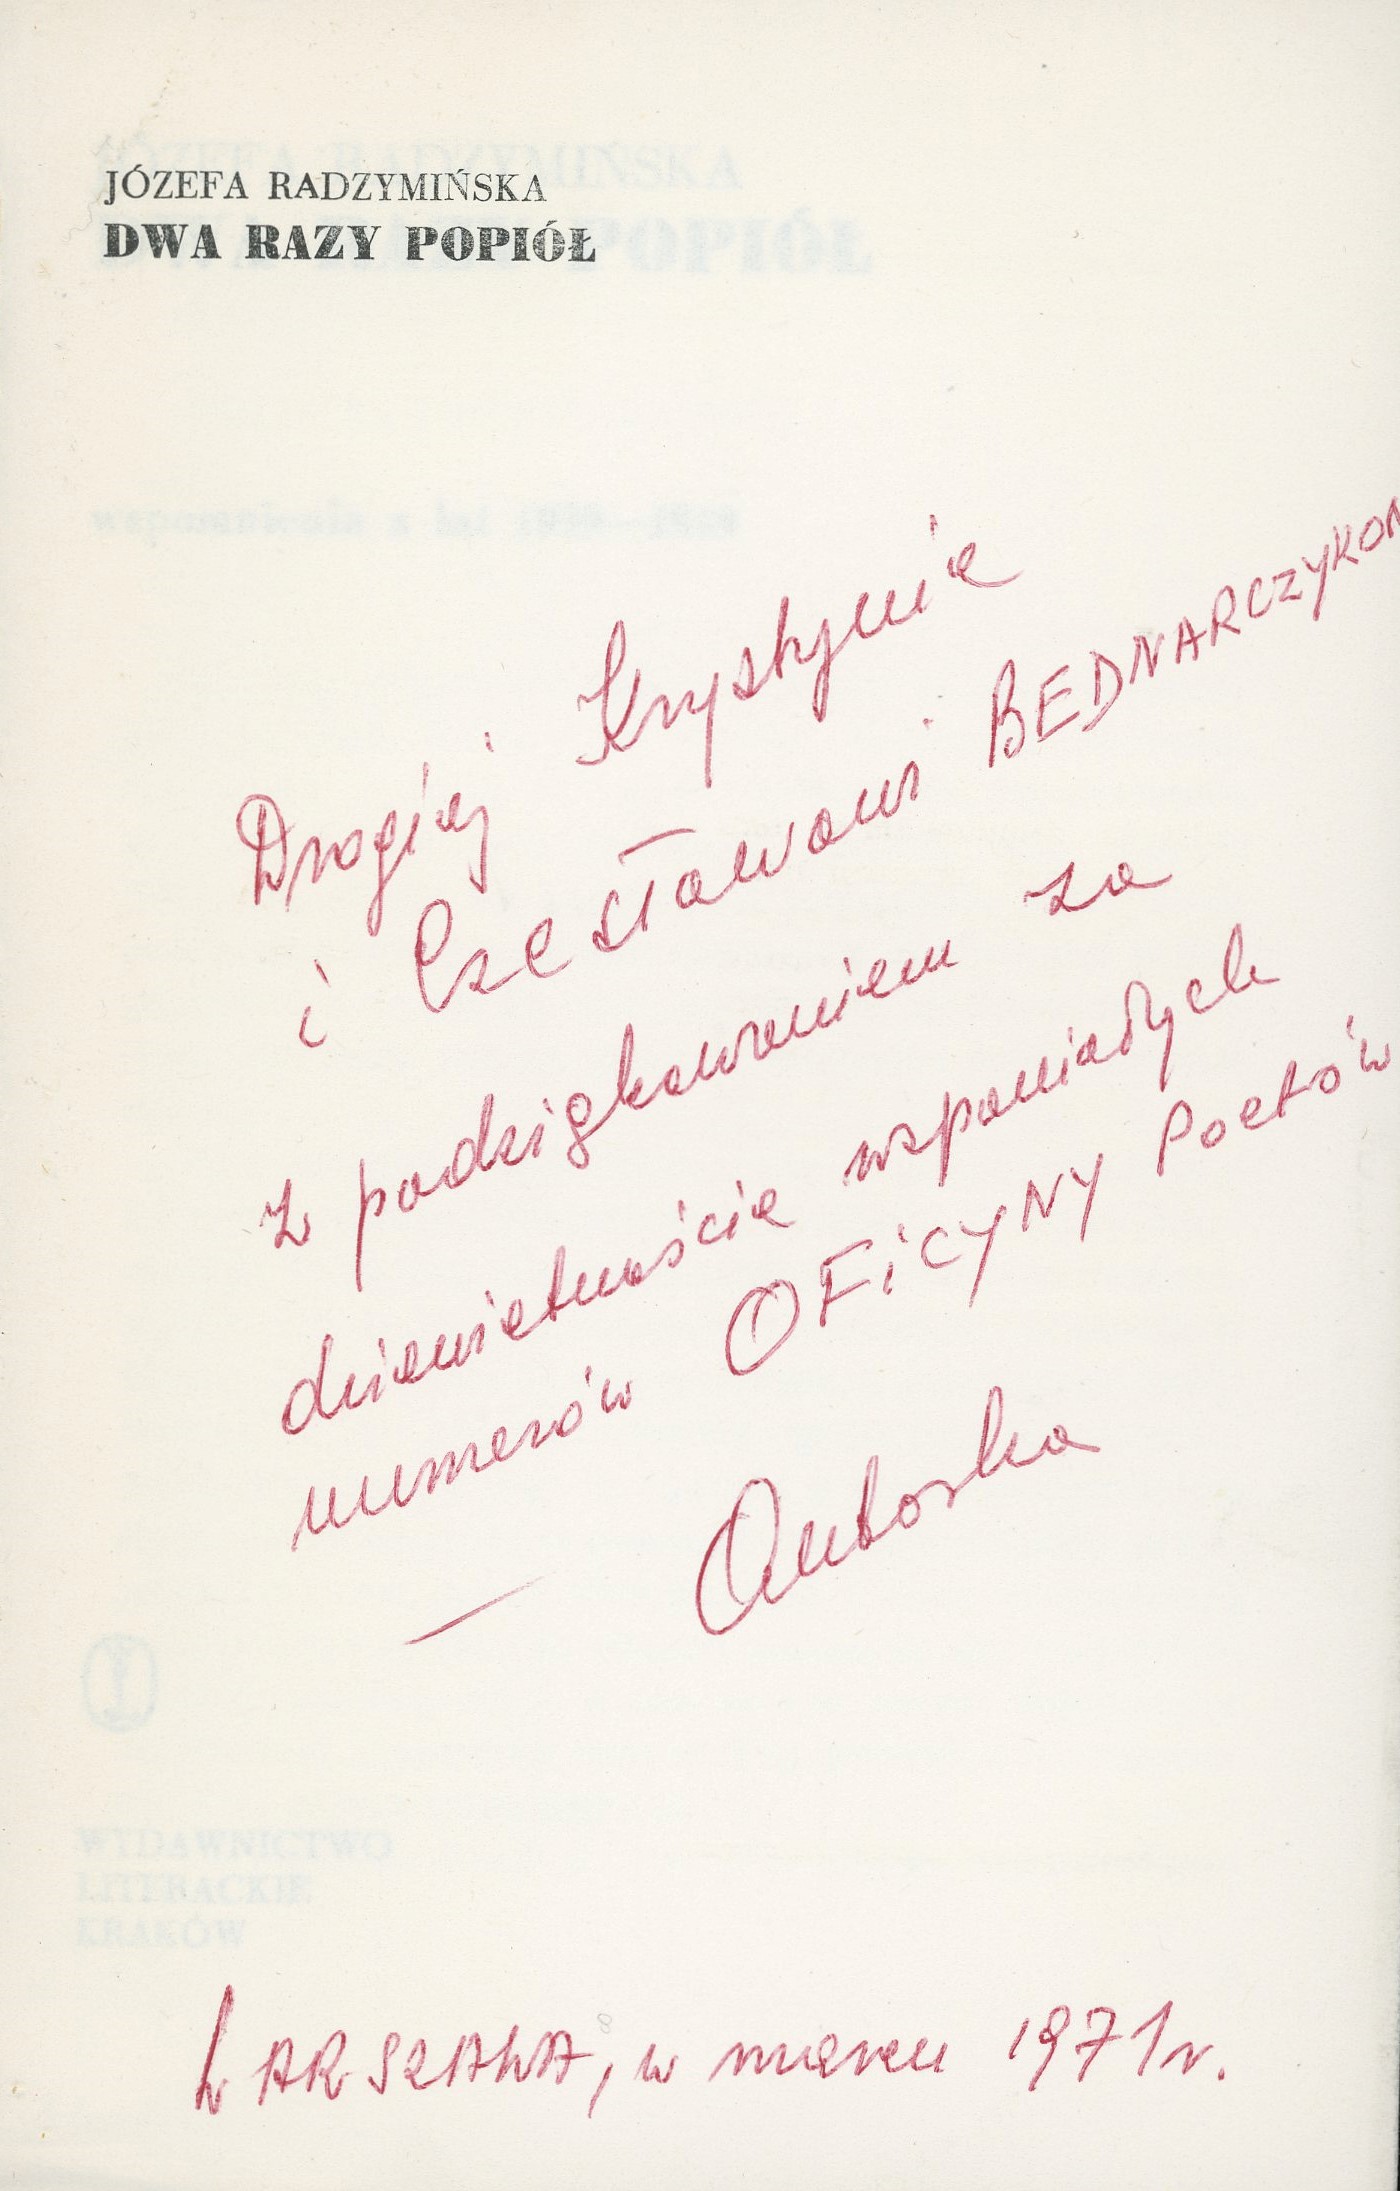 JÓZEFA RADZYMIŃSKA
DWA RAZY POPIÓŁ
Drogiej Krystynie
i Czesławowi BEDNARCZYKOM
z podziękowaniem za
dziewiętnaście wspaniałych
numerów OFICYNY Poetów
— Autorka
WYDAWNICTWO
LITERACKIE
KRAKÓW
WARSZAWA, w marcu 1971 r.